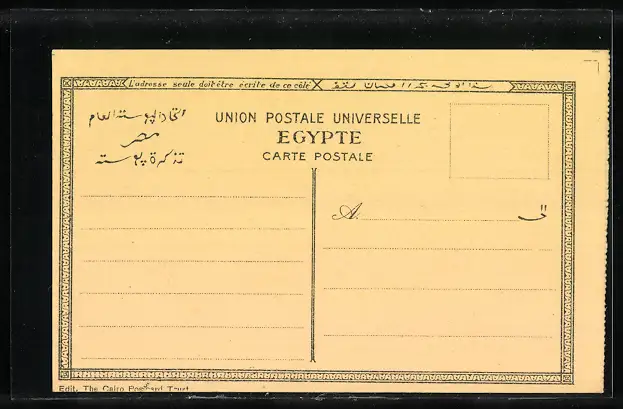 L'adresse seule doit être écrite de ce côté
UNION POSTALE UNIVERSELLE
EGYPTE
CARTE POSTALE
اتحاد البوسته العام
مصر
تذكرة بوسته
A.
الى
Edit. The Cairo Postcard Trust